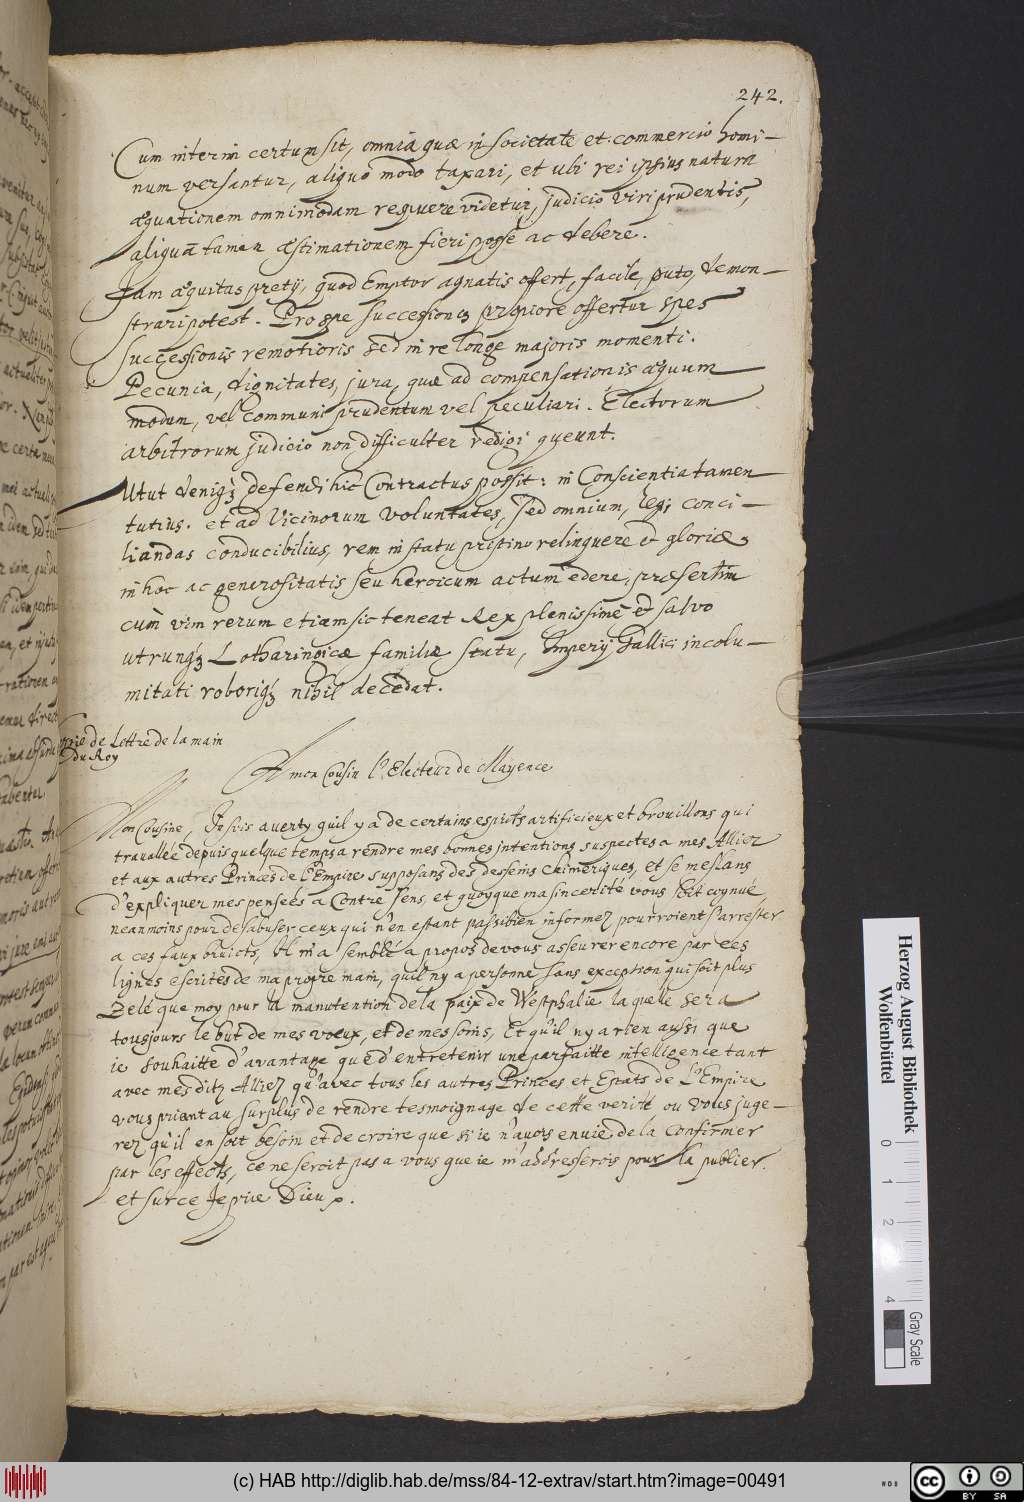 242.
Cum interim certum sit, omnia quæ in societate et commercio homi-
num versantur, aliquo modo taxari, et ubi rei ipsius natura
æquationem omnimodam respuere videtur, judicio viri prudentis,
aliquã tamen æstimationem fieri posse ac debere.
Jam æquitas pretij, quod Emptor agnatis offert, facile, puto, demon-
strari potest. Pro spe successionis propiore offertur spes
successionis remotioris sed in re longe majoris momenti.
Pecunia, dignitates, jura, quæ ad compensationis æquum
modum, vel communi prudentum vel peculiari. Electorum
arbitrorum judicio non difficulter redigi queunt.
Utut deniq; defendi hic Contractus possit: in Conscientia tamen
tutius. et ad Vicinorum voluntates, sed omnium, conci-
liandas conducibilius, rem in statu pristino relinquere & gloriæ
in hoc ac generositatis seu heroicum actum edere, præsertim
cum vim rerum etiam sic teneat Rex plenissimè et salvo
utrunq; Lotharingicæ familiæ statu, Imperij Gallici incolu-
mitati roboriq; nihil decedat.
de Lettre de la main
du Roy
A mon Cousin l'Electeur de Mayence
Mon Cousine, Je suis averty quil y a de certains esprits artificieux et brouillons qui
travallée depuis quelque temps a rendre mes bonnes intentions suspectes a mes Alliez
et aux autres Princes de l'Empire supposans des desseins chimeriques, et se meslans
d'expliquer mes pensées a contre sens, et quoyque ma sincerité vous soit cognue
neanmoins pour desabuser ceux qui n'en estant pas si bien informez pourroient s'arrester
a ces faux bruicts, Il m'a semblé a propos de vous asseurer encore par ces
lignes escrites de ma propre main, quil ny a personne sans exception qui soit plus
Zelé que moy pour la manutention de la paix de Westphalie la quelle sera
tousjours le but de mes voeux, et de mes soins, Et qu'il ny a rien aussi que
ie souhaitte d'avantage que d'entretenir une parfaitte intelligence tant
avec mes ditz Alliez qu'avec tous les autres Princes et Estats de l'Empire
vous priant au surplus de rendre tesmoignage de cette verité ou vous juge-
rez qu'il en soit besoin et de croire que si ie n'avois envie de la confirmer
par les effects, ce ne seroit pas a vous que ie m'addresserois pour la publier.
et sur ce Je prie Dieu
Herzog August Bibliothek
Wolfenbüttel
0 1 2 4
Gray Scale
(c) HAB http://diglib.hab.de/mss/84-12-extrav/start.htm?image=00491
cc BY SA